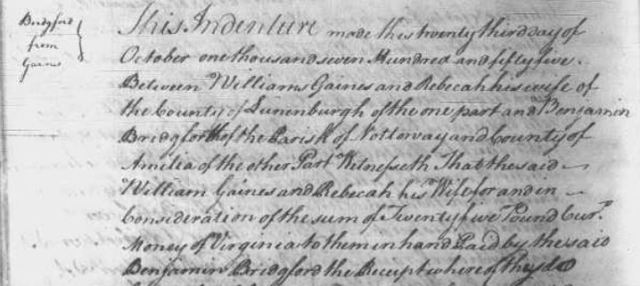 Bridgford
from
Gains
This Indenture made this twenty third day of
October one thousand seven Hundred and fifty five.
Between Williams Gaines and Rebecah his wife of
the County of Lunenburgh of the one part and Benjamin
Bridgforth of the Parish of Nottoway and County of
Amilia of the other Part Witnesseth That the said
William Gaines and Rebecah his Wife for and in
Consideration of the sum of Twenty five Pound Curt.
Money of Virginia to them in hand Paid by the said
Benjamin Bridgford the Receipt where of they do